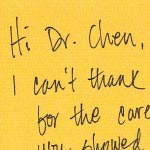 Hi Dr. Chen,
I can't thank
for the care
you showed